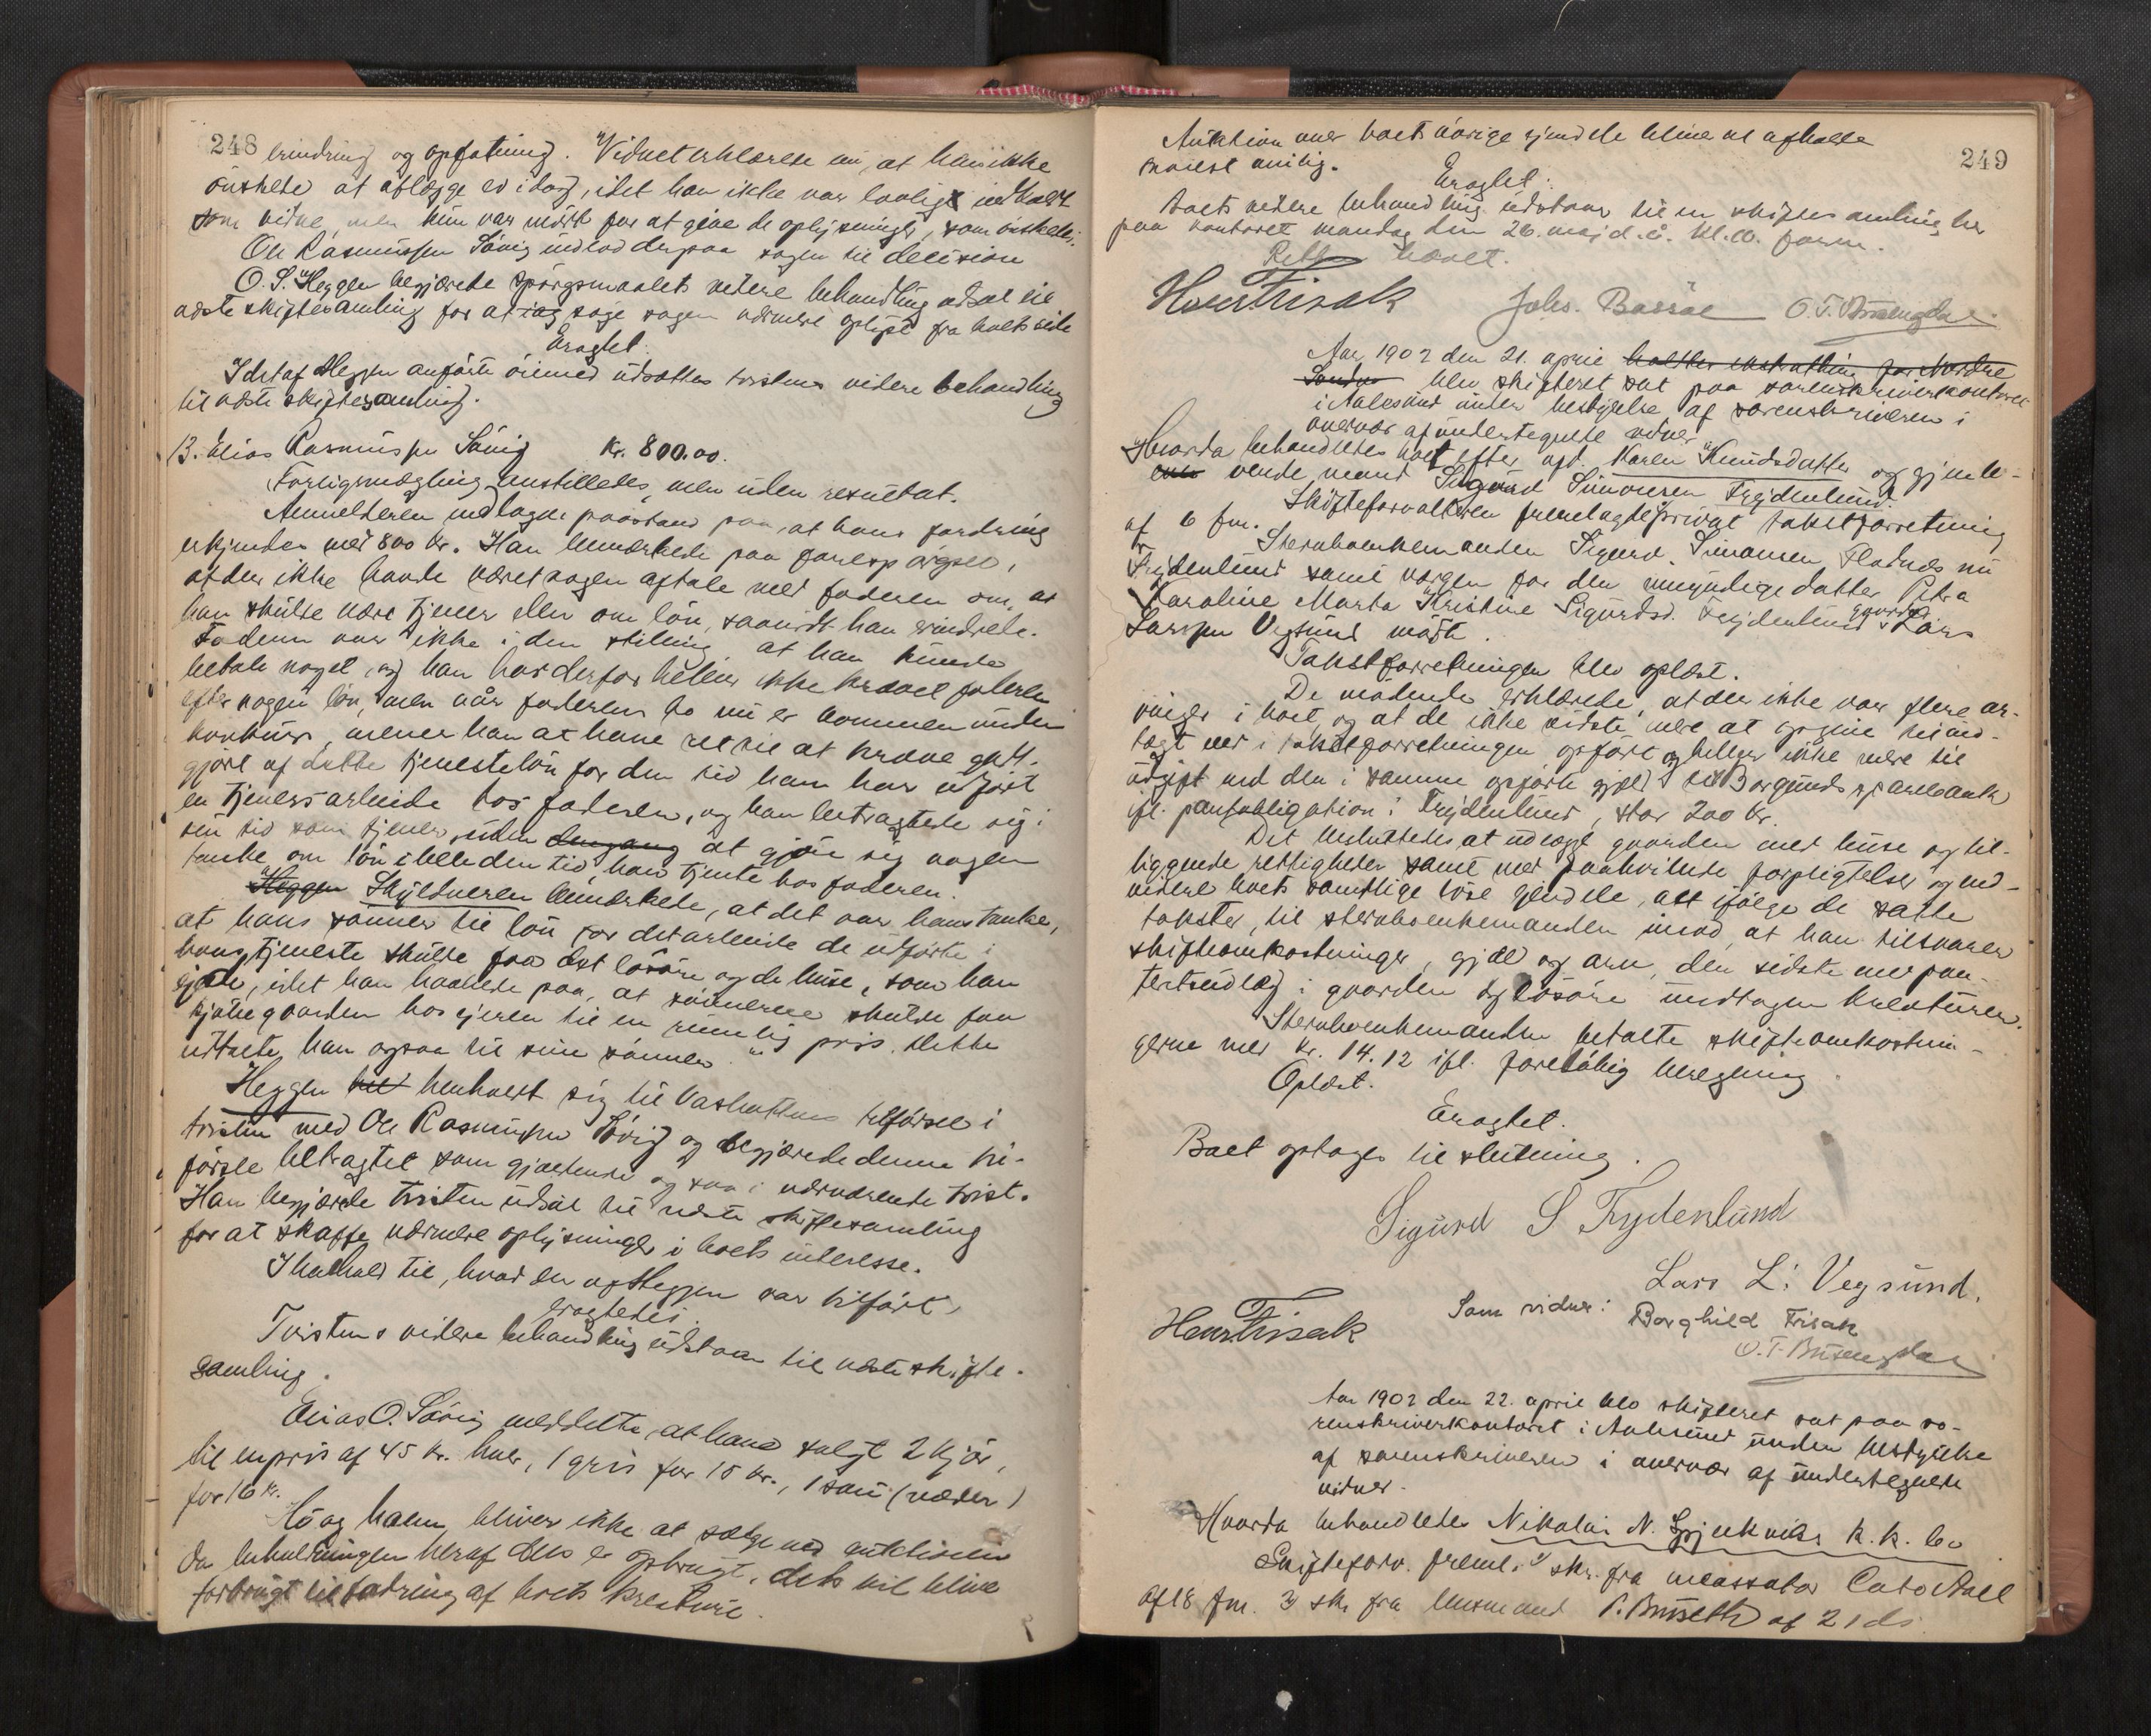 248
erindring og opfatning. Vidnet erklærede nu, at han ikke
ønskede at aflægge ed idag, idet han ikke var lovligt indkaldt
som vidne, men kun var mødt for at give de oplysninger, som ønskedes.
Ole Rasmussen Søvig indlod derpaa sagen til decision
O. S. Heggen begjærede spørgsmaalets videre behandling udsat til
næste skiftesamling for at søge sagen nærmere oplyst fra boets side
Eragtet:
I det af Heggen anførte øiemed udsættes tvistens videre behandling
til næste skiftesamling.
13. Elias Rasmussen Søvig Kr. 800.00.
Forligsmægling anstilledes, men uden resultat.
Anmelderen nedlagde paastand paa, at hans fordring
erkjendes med 800 kr. Han bemærkede paa forespørgsel,
at der ikke havde været nogen aftale med faderen om, at
han skulde være tjener eller om løn, saavidt han erindrede.
Faderen var ikke i den stilling, at han kunde
betale noget, og han har derfor heller ikke krævet faderen
efter nogen løn, men når faderens bo nu er kommen under
konkurs, mener han at have ret til at kræve godt-
gjort af dette tjenesteløn for den tid han har udført
en tjeners arbeide hos faderen, og han betragtede sig i
sin tid som tjener, uden dengang at gjøre sig nogen
tanke om løn i hele den tid, han tjente hos faderen.
Heggen Skyldneren bemærkede, at det var hans tanke,
at hans sønner til løn for det arbeide de udførte i
hans tjeneste skulde faa det løsøre og de huse, som han
ejede, idet han haabede paa, at sønnerne skulde faa
kjøbe gaarden hos ejeren til en rimelig pris. Dette
udtalte han ogsaa til sine sønner.
Heggen henholdt sig til tilførsel i
tvisten med Ole Rasmussen Søvig og begjærede denne til-
førsle betragtet som gjældende ogsaa i nærværende tvist.
Han begjærede tvisten udsat til næste skiftesamling
for at skaffe nærmere oplysninger i boets interesse.
I henhold til, hvad der af Heggen var tilført,
eragtedes:
Tvistens videre behandling udstaar til næste skifte-
samling.
Elias O. Søvig meddelte, at have solgt 2 kjør,
til en pris af 45 kr. hver, 1 gris for 15 kr., 1 sau (væder)
for 16 kr.
Hø og halm bliver ikke at sælge ved auktionen
da beholdningen heraf dels er opbrugt, dels vil blive
forbrugt til fodring af boets kreature.
249
Auktion over boets øvrige ejendele bliver at afholde
snarest mulig.
Eragtet:
Boets videre behandling udstaar til en skiftesamling her
paa kontoret mandag den 26. maj d. å. kl. 10. form.
Retten hævet.
Henr Frisak Johs. Bassøe O. T. Busengdal
Aar 1902 den 21. april holdtes extrathing for Nordre
Søndre blev skifteret sat paa sorenskriverkontoret
i Aalesund under bestyrelse af sorenskriveren i
overvær af undertegnede vidner
Hvorda behandledes boet efter afd. Karen Knudsdatter og gjenle-
vende mand Sigurd Simonsen Frydenlund.
Skifteforvalteren fremlagde privat takstforretning
af 6 fm.
Sterboenkemanden Sigurd Simonsen Flatnæs nu
Frydenlund samt vergen for den umyndige datter Petra
Karoline Marta Kristine Sigurdsd. Frydenlund gaardbr. Lars
Larssen Vegsund mødte.
Takstforretningen blev oplæst.
De mødende erklærede, at der ikke var flere ar-
vinger i boet, og at de ikke vidste mere at opgive til ind-
tægt end i takstforretningen opført og heller ikke mere til
udgift end den i samme opførte gjæld til Borgunds sparebank
ifl. pantobligation i Frydenlund, stor 200 kr.
Det besluttedes at udlægge gaarden med huse og til-
liggende rettigheder samt med paahvilende forpligtelser og end-
videre boets samtlige løse ejendele, alt ifølge de satte
takster, til sterboenkemanden imod, at han tilsvarer
skifteomkostninger, gjæld og arv, den sidste mod pan-
tertsudlæg i gaarden og løsøre undtagen kreaturer.
Sterboenkemanden betalte skifteomkostnin-
gerne med kr. 14.12 ifl. foreløbig beregning.
Oplæst.
Eragtet.
Boet optages til slutning.
Sigurd S Frydenlund
Lars L: Vegsund.
Henr Frisak Som vidner: Borghild Frisak
O. T. Busengdal
Aar 1902 den 22. april blev skifteret sat paa so-
renskriverkontoret i Aalesund under bestyrelse
af sorenskriveren i overvær af undertegnede
vidner.
Hvorda behandledes Nikolai N. Gjerkvik's k. k. bo
Skifteforv. freml. skr. fra incassator Cato Aall
af 18 fm. 3 skr fra lensmand P. Buseth af 21 ds.